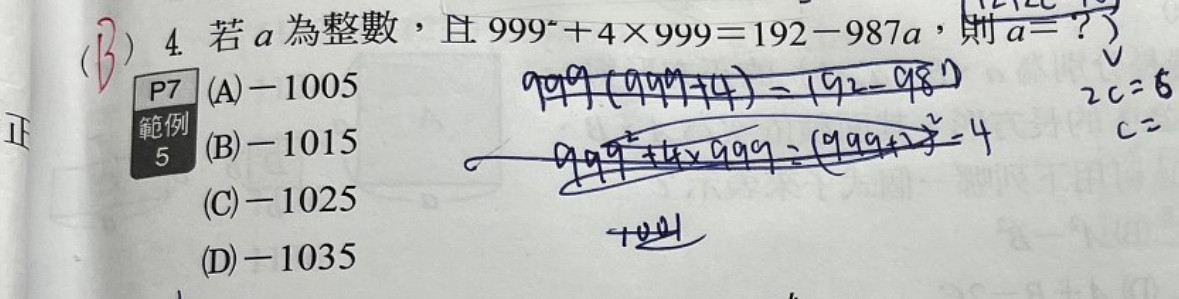 (B) 4. 若 a 為整數，且 999²+4×999=192−987a，則 a=？
P7 範例 5
(A)−1005
(B)−1015
(C)−1025
(D)−1035
999(999+4)=192−987
999²+4×999=(999+2)²−4
2c=6
c=
正